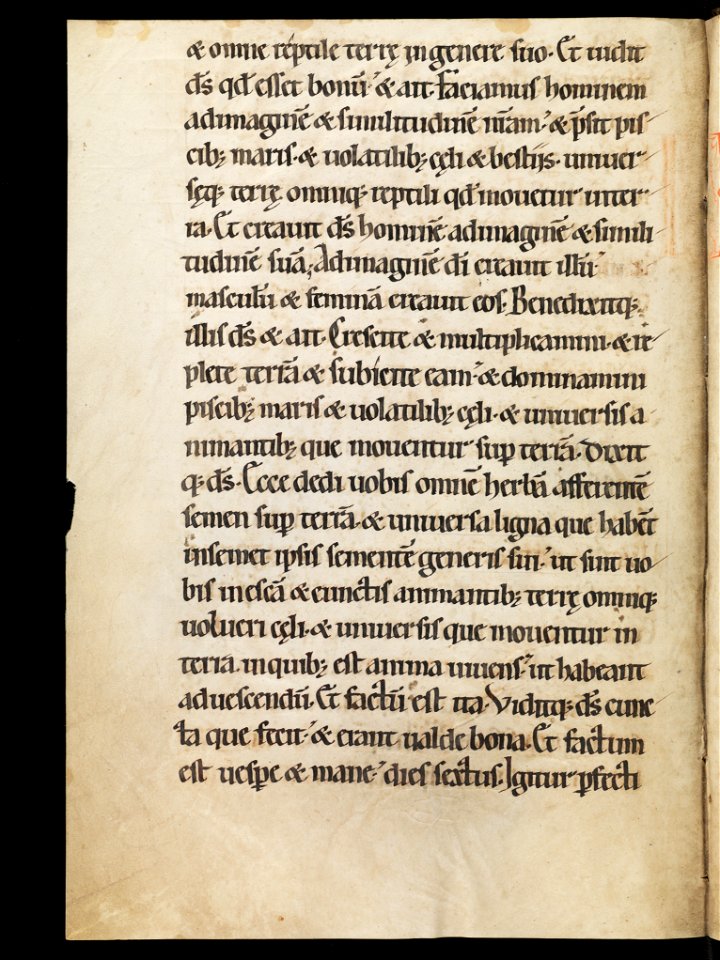 & omne réptile terrę in genere suo. Et uidit
d̄s qd̄ esset bonū. & ait. Faciamus hominem
ad imaginē & similitudinē nr̄am. & p̄sit pis
cibꝫ maris. & uolatilibꝫ cęli & bestijs. uniuer
sęqꝫ terrę omniqꝫ reptili qd̄ mouetur in ter
ra. Et creauit d̄s hominē ad imaginē & simili
tudinē suā. Ad imaginē dī creauit illū.
masculū & feminā creauit eos. Benedixitqꝫ
illis d̄s & ait. Crescite & multiplicamini. & re
plete terrā & subicite eam. & dominamini
piscibꝫ maris & uolatilibꝫ cęli. & uniuersis a
nimantibꝫ que mouentur suꝑ terrā. Dixit
qꝫ d̄s. Ecce dedi uobis omnē herbā afferentē
semen suꝑ terrā. & uniuersa ligna que habēt
in semet ipsis sementē generis sui. ut sint uo
bis in escā & cunctis animantibꝫ terrę omniqꝫ
uolucri cęli. & uniuersis que mouentur in
terra. in quibꝫ est anima uiuens. ut habeant
ad uescendū. Et factū est ita. Viditqꝫ d̄s cunc
ta que fecit. & erant ualde bona. Et factum
est uesꝑe & mane. dies sextus. Igitur ꝑfecti